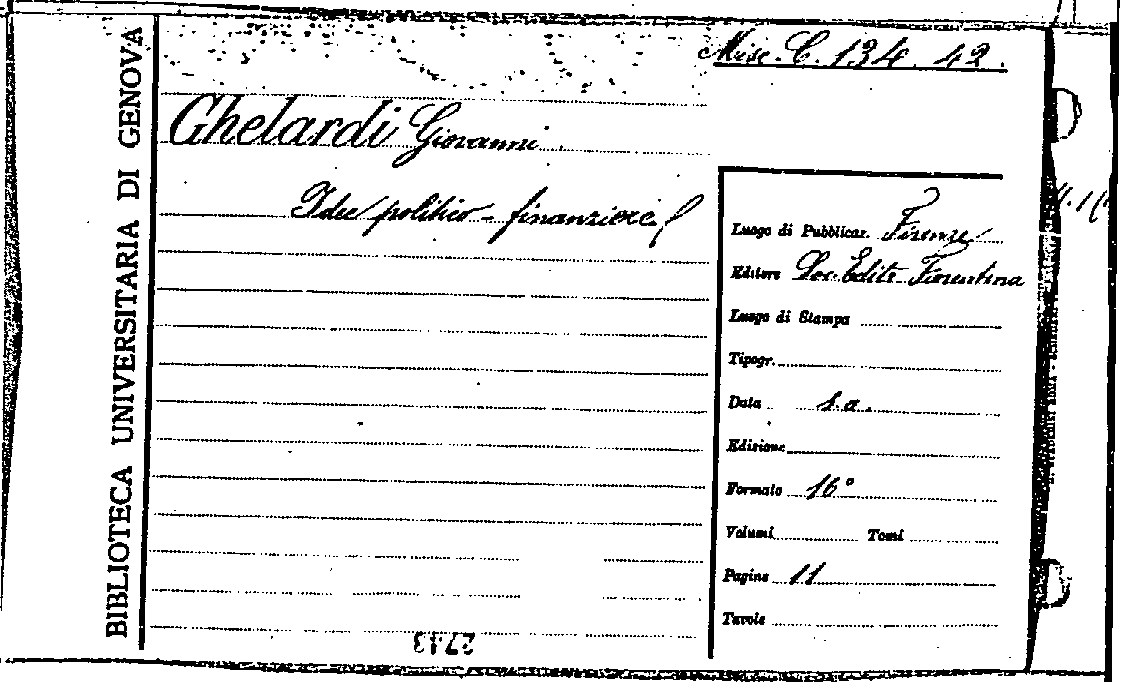 BIBLIOTECA UNIVERSITARIA DI GENOVA
Misc. C. 134. 42.
Ghelardi Giovanni
Idee politico-finanziarie
Luogo di Pubblicaz. Firenze
Editore Soc. Edit. Fiorentina
Luogo di Stampa
Tipogr.
Data s.a.
Edizione
Formato 16°
Volumi Tomi
Pagine 11
Tavole
2743